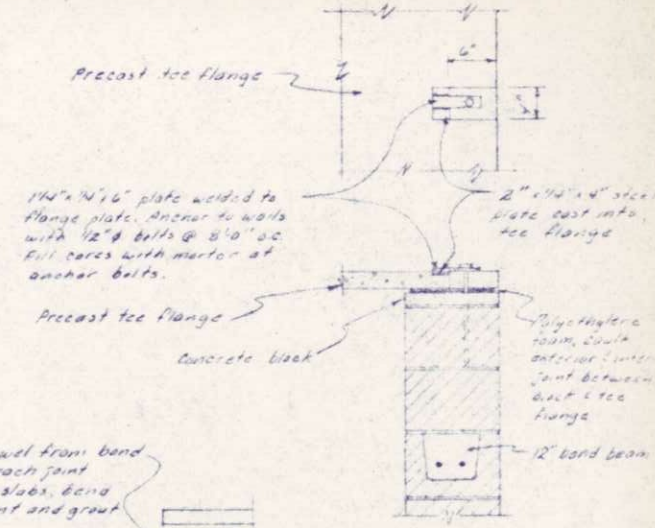 6"
Precast tee flange
1/4" x 6" plate welded to
flange plate. Anchor to walls
with 1/2"ϕ bolts @ 8'-0" o.c.
Fill cores with mortar at
anchor bolts.
2" x 1/4" x 4" steel
plate cast into
tee flange
Precast tee flange
Concrete block
Polyethylene
foam, caulk
exterior &
joint between
block & tee
flange
12" bond beam
from bond
each joint
slabs, bend
and grout